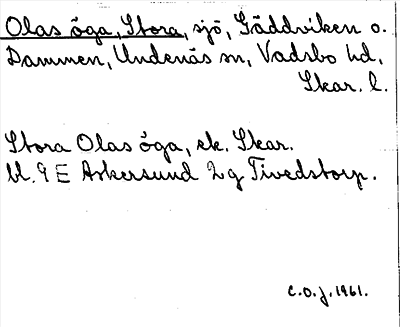 Olas öga, Stora, sjö, Gäddviken o.
Dammen, Undenäs sn, Vadsbo hd,
Skar. l.
Stora Olas öga, ek. Skar.
bl. 9 E Askersund 2 g Tivedstorp.
C.O.J. 1961.